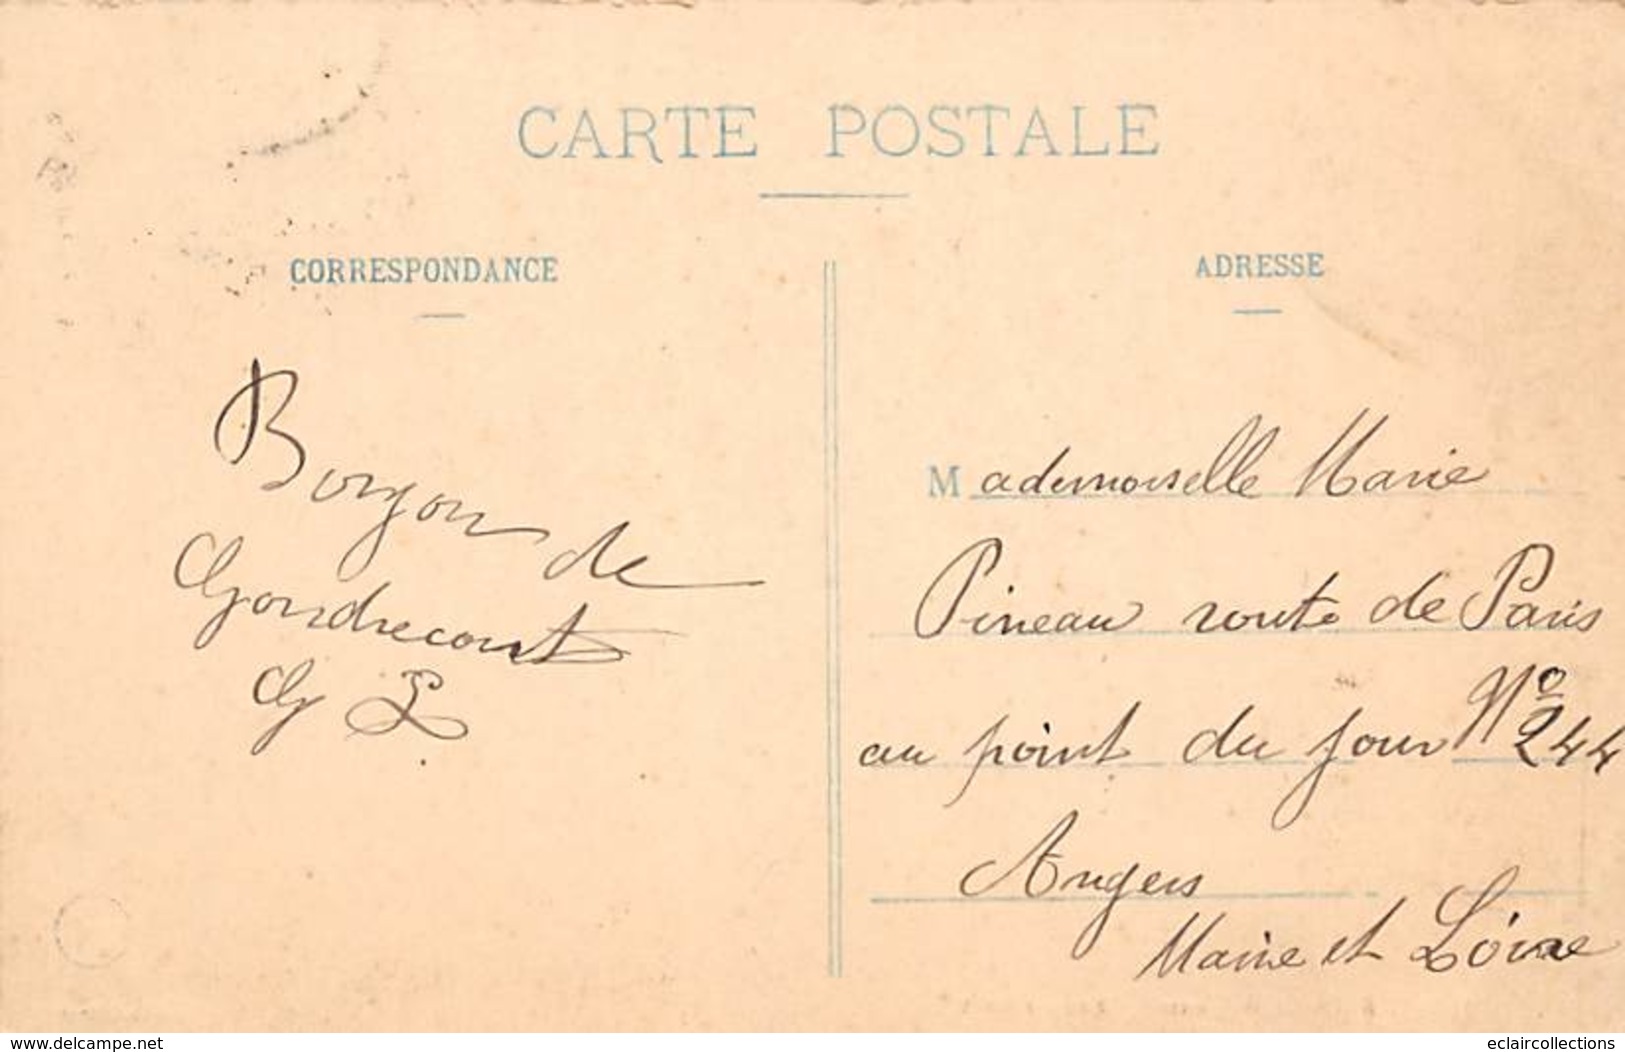 CARTE POSTALE
CORRESPONDANCE
Bonjour de
Gondrecourt
G L
ADRESSE
Mademoiselle Marie
Pineau route de Paris
au point du jour N° 244
Angers
Maine et Loire
www.delcampe.net
eclaircollections